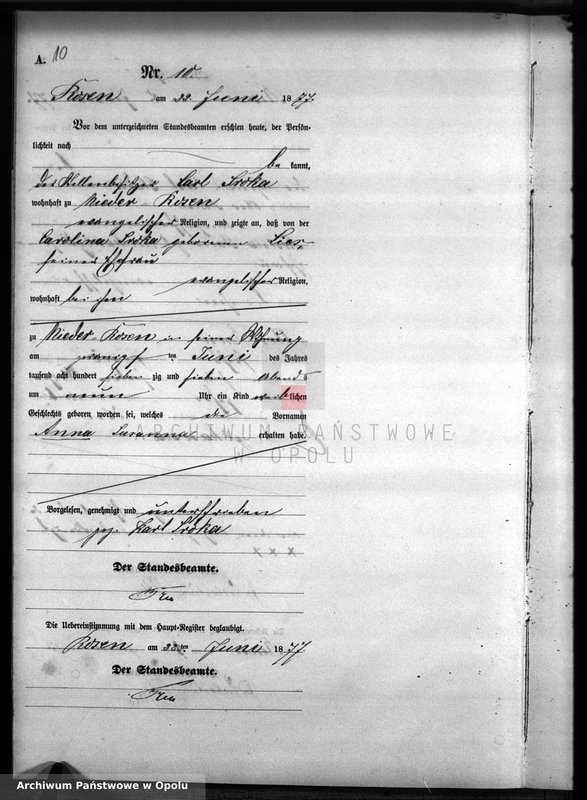 A. 10
Nr. 10.
Rosen am 22. Juni 1877.
Vor dem unterzeichneten Standesbeamten erschien heute, der Persön-
lichkeit nach
be kannt,
der Stellenbesitzer Carl Sroka
wohnhaft zu Nieder Rosen
evangelischer Religion, und zeigte an, daß von der
Carolina Sroka geborenen
seiner Ehefrau
evangelischer Religion,
wohnhaft bei ihm
zu Nieder Rosen in seiner Wohnung
am ten Juni des Jahres
tausend acht hundert sieben zig und sieben Abends
um neun Uhr ein Kind weiblichen
Geschlechts geboren worden sei, welches die Vornamen
Anna Susanna erhalten habe.
ARCHIWUM PAŃSTWOWE
W OPOLU
Vorgelesen, genehmigt und unterschrieben
gez. Karl Sroka
Der Standesbeamte.
Die Uebereinstimmung mit dem Haupt-Register beglaubigt.
Rosen am 22. ten Juni 1877
Der Standesbeamte.
Archiwum Państwowe w Opolu